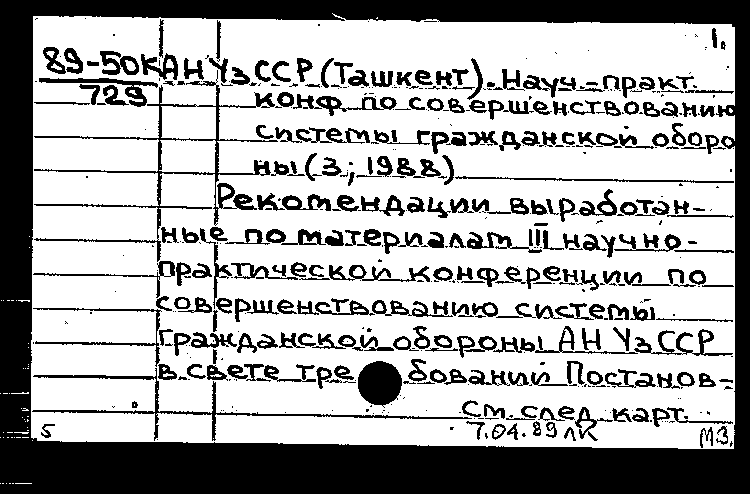 1.
89-50К АН УзССР (Ташкент). Науч.-практ.
729 конф. по совершенствованию
системы гражданской оборо
ны (3; 1988)
Рекомендации выработан-
ные по материалам III научно-
практической конференции по
совершенствованию системы
гражданской обороны АН УзССР
в свете тре бований Постанов=
См. след. карт.
5 7.04.89 ЛК МЗ.